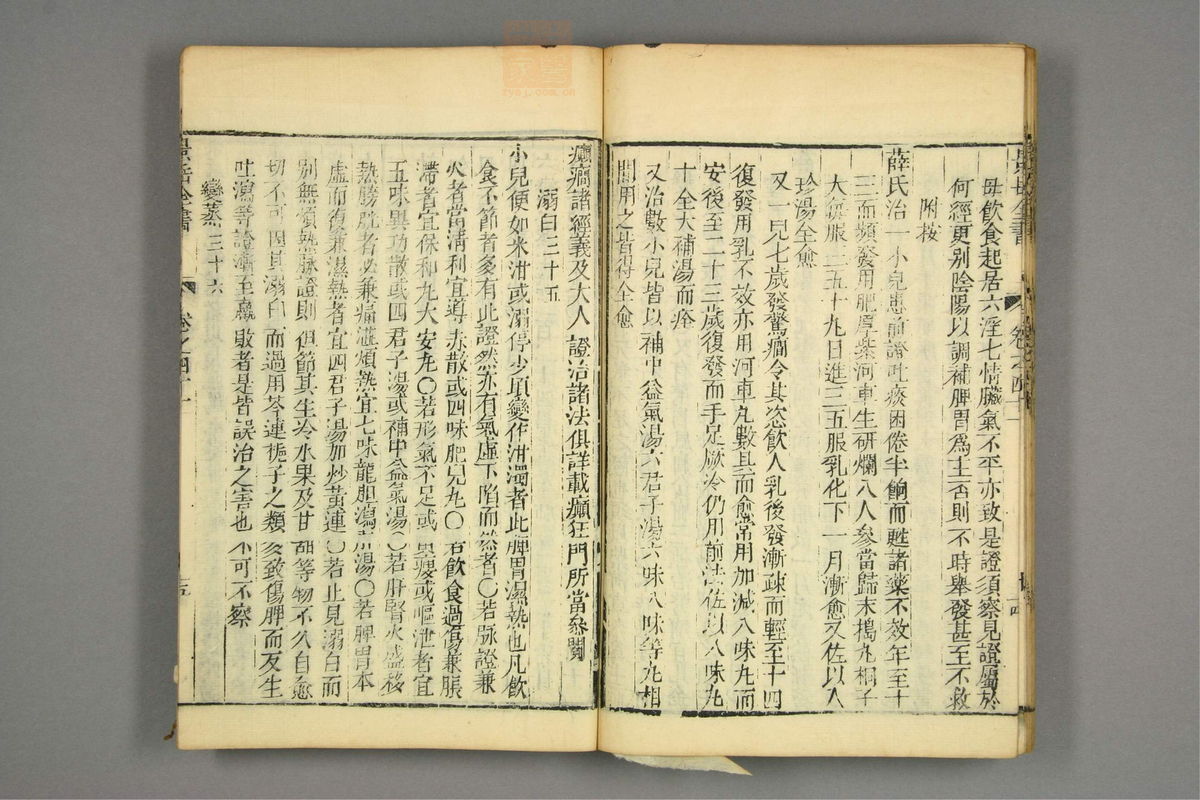 母飲食起居六淫七情臟氣不平亦致是證須察見證屬於
何經更别陰陽以調補脾胃爲主否則不時舉發甚至不救
附按
薛氏治一小兒患前證吐痰困倦半餉而甦諸藥不效年至十
三而頻發用肥厚紫河車生研爛入人參當歸末搗丸桐子
大每服三五十丸日進三五服乳化下一月漸愈又佐以八
珍湯全愈
又一兒七歲發驚癇令其恣飲人乳後發漸疎而輕至十四
復發用乳不效亦用河車丸數具而愈常用加减八味丸而
安後至二十三歲復發而手足厥冷仍用前法佐以八味丸
十全大補湯而痊
又治數小兒皆以補中益氣湯六君子湯六味八味等丸相
間用之皆得全愈
癲癇諸經義及大人證治諸法俱詳載癲狂門所當參閱
溺白三十五
小兒便如米泔或溺停少頃變作泔濁者此脾胃濕熱也凡飲
食不節者多有此證然亦有氣虛下陷而然者〇若脉證兼
火者當清利宜導赤散或四味肥兒丸〇若飲食過傷兼脹
滯者宜保和丸大安丸〇若形氣不足或黄瘦或嘔泄者宜
五味異功散或四君子湯或補中益氣湯〇若肝腎火盛移
熱膀胱者必兼痛澁煩熱宜七味龍胆瀉肝湯〇若脾胃本
虛而復兼濕熱者宜四君子湯加炒黄連〇若止見溺白而
别無煩熱脉證則但節其生冷水果及甘甜等物不久自愈
切不可因其溺白而過用芩連梔子之類多致傷脾而反生
吐瀉等證漸至羸敗者是皆誤治之害也不可不察
變蒸三十六
景岳全書
卷之四十一